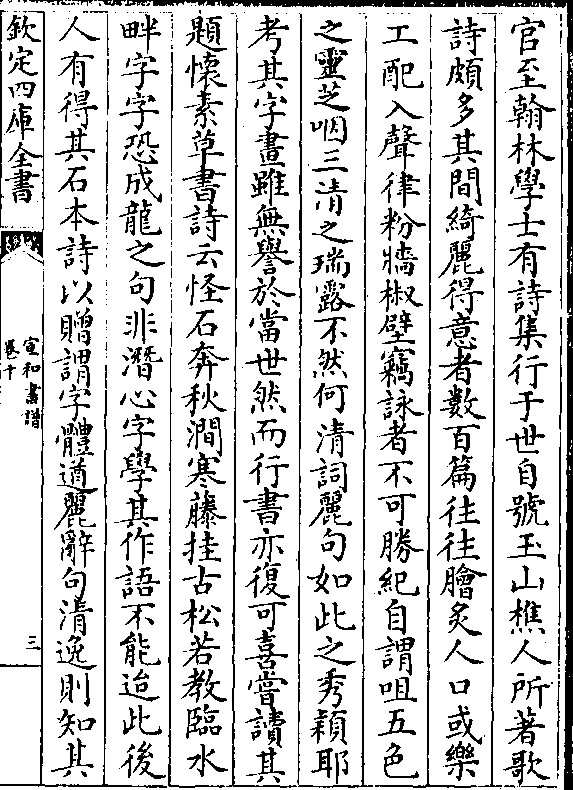 官至翰林學士有詩集行于世自號玉山樵人所著歌
詩頗多其間綺麗得意者數百篇往往膾炙人口或樂
工配入聲律粉牆椒壁竊詠者不可勝紀自謂咀五色
之靈芝咽三清之瑞露不然何清詞麗句如此之秀穎耶
考其字畫雖無譽於當世然而行書亦復可喜嘗讀其
題懷素草書詩云怪石奔秋澗寒藤挂古松若教臨水
畔字字恐成龍之句非潛心字學其作語不能迨此後
人有得其石本詩以贈謂字體遒麗辭句清逸則知其
欽定四庫全書
宣和書譜
卷十
三